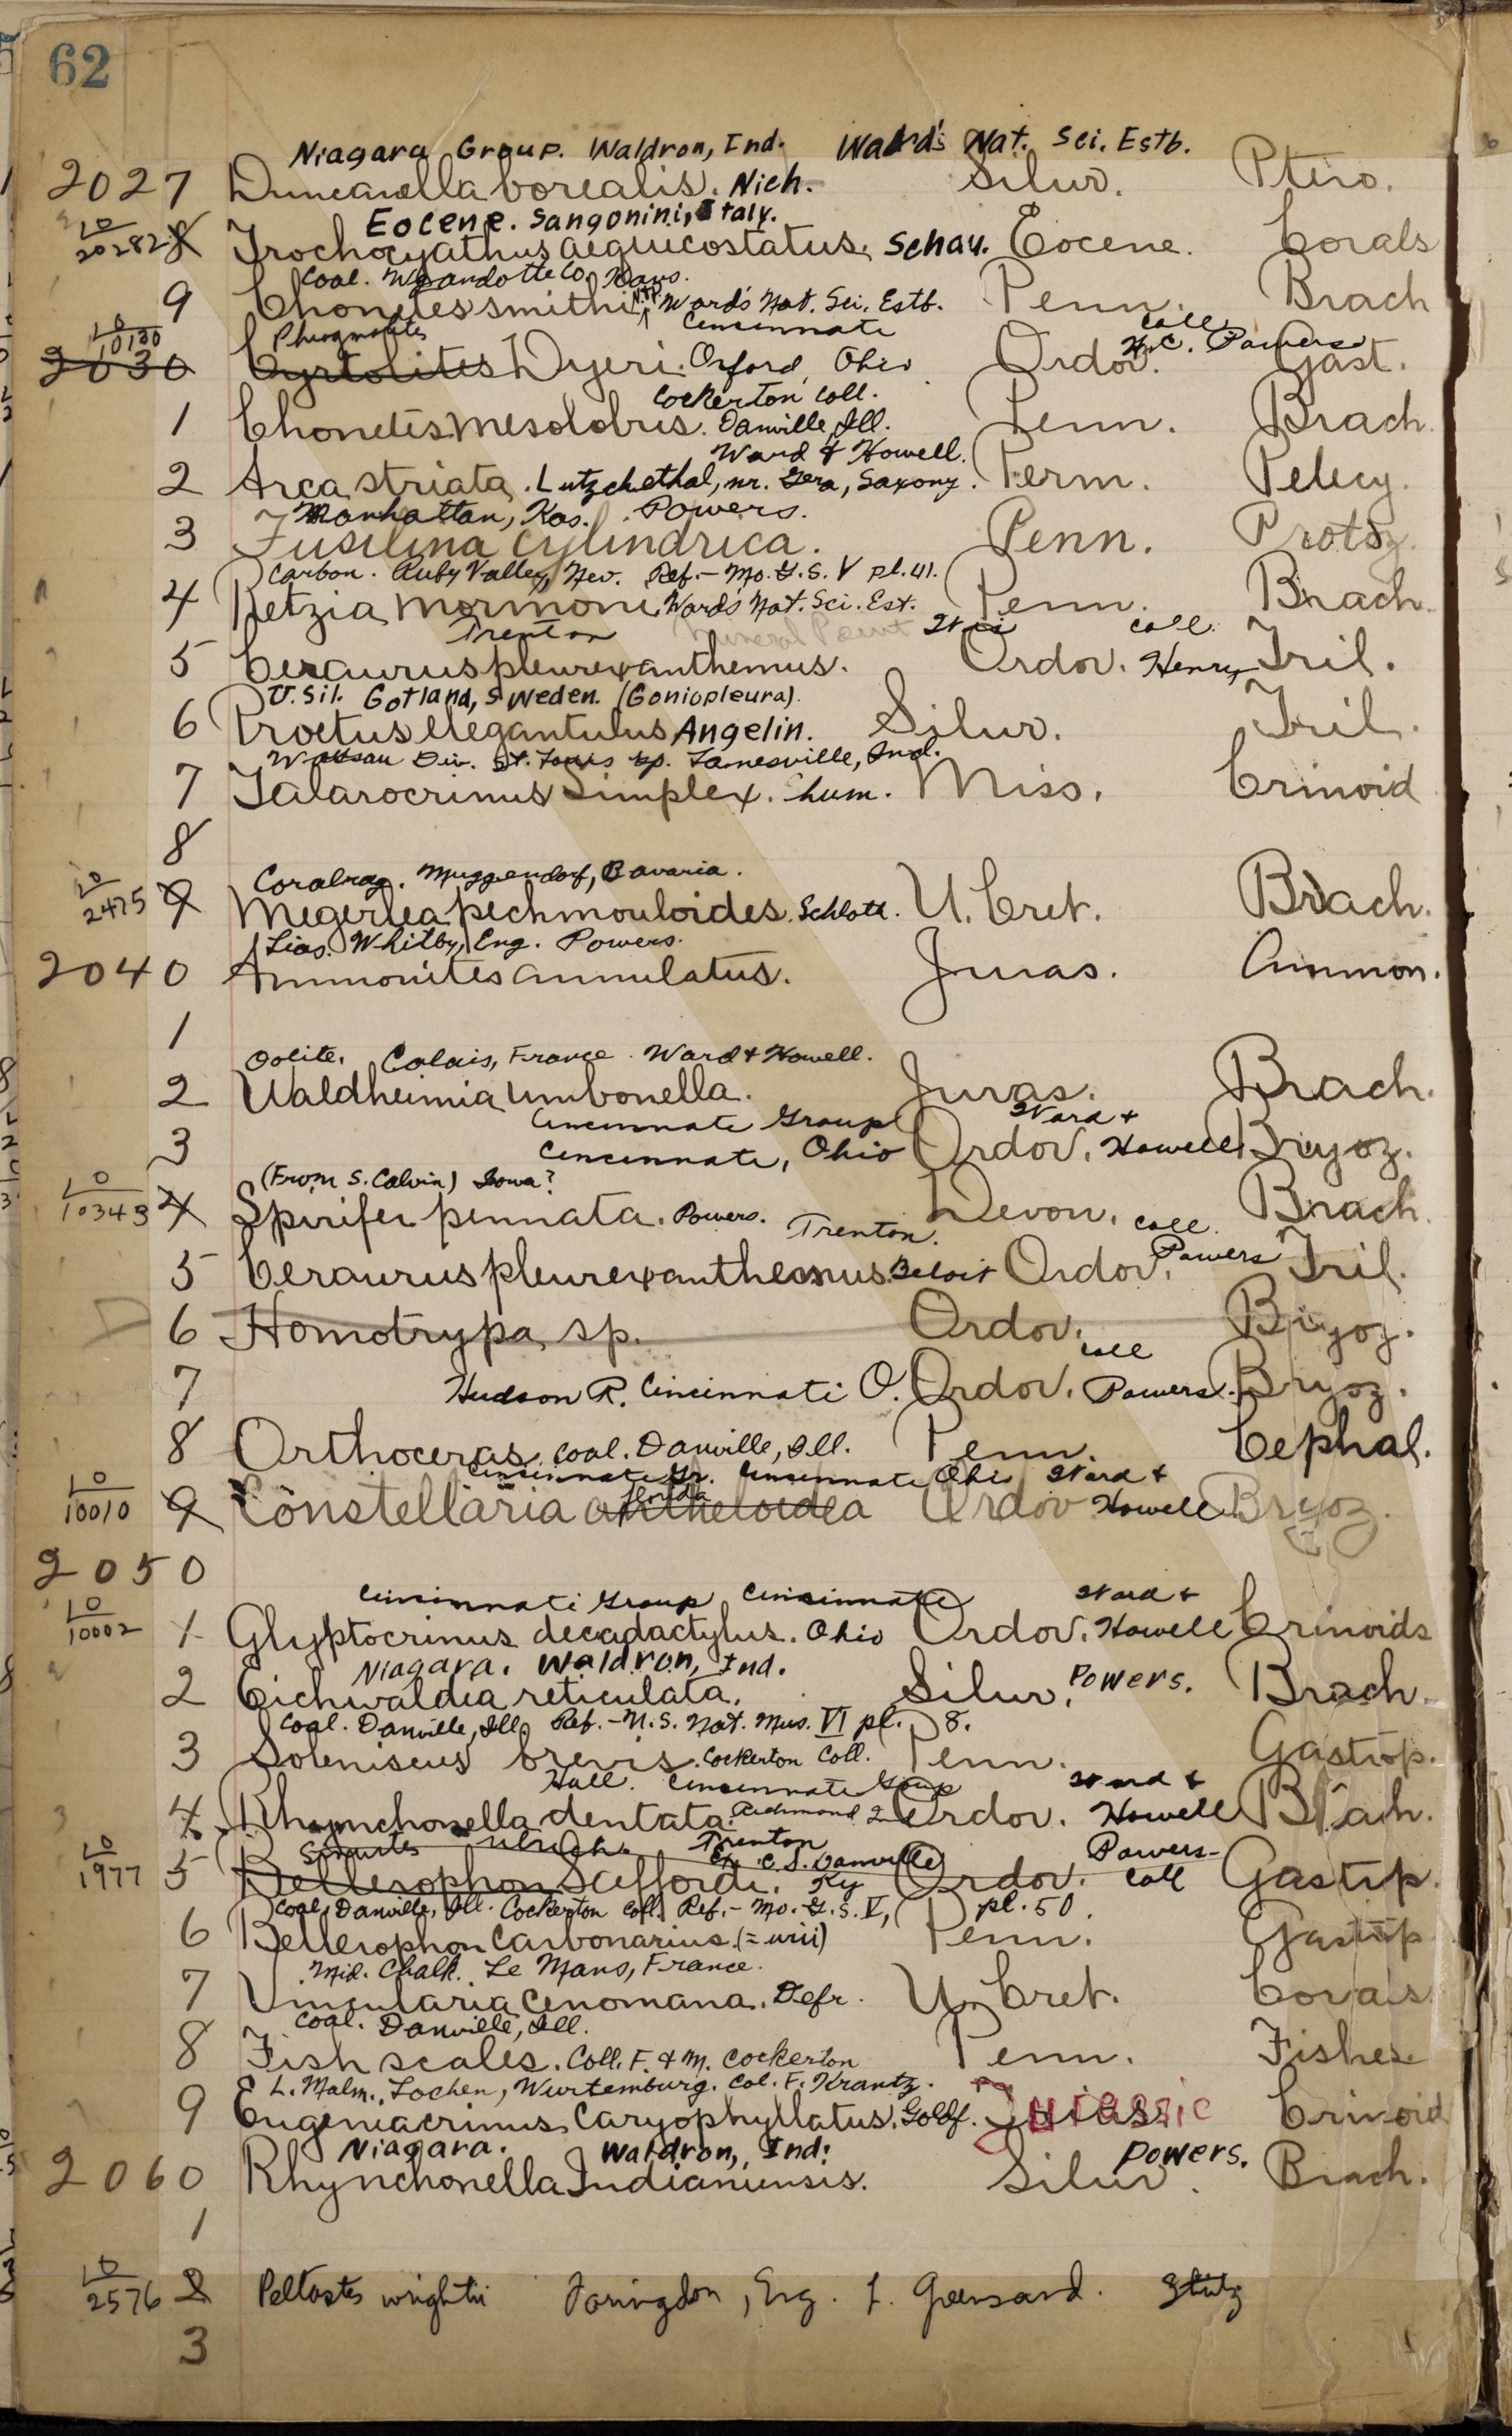 62
Niagara Group. Waldron, Ind. Ward's Nat. Sci. Estb.
2027 Duncanella borealis. Nich. Silur. Ptero.
Eocene. Sangonini, Italy.
10
20282 8 Trochocyathus aequicostatus. Schau. Eocene. Corals
Coal. Wyandotte Co. Kans.
9 Chonetes smithi N&P Ward's Nat. Sci. Estb. Penn. Brach
Phragmolites Cincinnati Coll.
10
10130 H.C. Powers
2030 Cyrtolites Dyeri. Oxford, Ohio Ordov. Gast.
Cockerton Coll.
1 Chonetes mesolobus. Danville, Ill. Penn. Brach.
Ward & Howell.
2 Arca striata. Lutzchethal, nr. Gera, Saxony. Perm. Pelecy.
Manhattan, Kas. Powers.
3 Fusilina cylindrica. Penn. Protoz.
Carbon. Ruby Valley, Nev. Ref.- Mo. G. S. V pl. 41.
4 Retzia mormoni Ward's Nat. Sci. Est. Penn. Brach.
Trenton Mineral Point Wis Coll.
5 Ceraurus pleurexanthemus. Ordov. Henry Tril.
U. Sil. Gotland, Sweden. (Goniopleura).
6 Proetus elegantulus Angelin. Silur. Tril.
Div. St. Louis gp. Lanesville, Ind.
7 Talarocrinus Simplex. Shum. Miss. Crinoid
8
Coralrag. Muggendorf, Bavaria.
10
2475 9 Megerlea pechmouloides. Schloth. U. Cret. Brach.
Lias. Whitby, Eng. Powers.
2040 Ammonites annulatus. Juras. Ammon.
1
Oolite. Calais, France. Ward & Howell.
2 Waldheimia umbonella. Juras. Brach.
Cincinnati Group Ward &
3 Cincinnati, Ohio Ordov. Howell Bryoz.
(From S. Calvin) Iowa?
10
10343 4 Spirifer pennata. Powers. Devon. Brach.
Trenton. Coll.
5 Ceraurus pleurexanthemus. Beloit Ordov. Powers Tril.
6 Homotrypa sp. Ordov. Bryoz.
Coll
7 Hudson R. Cincinnati O. Ordov. Powers. Bryoz.
8 Orthoceras. Coal. Danville, Ill. Penn. Cephal.
Cincinnati Gr. Cincinnati Ohio Ward &
10
10010 9 Constellaria antheloidea florida Ordov Howell Bryoz.
2050
Cincinnati Group Cincinnati Ward &
10
10002 1 Glyptocrinus decadactylus. Ohio Ordov. Howell Crinoids
Niagara. Waldron, Ind.
2 Eichwaldia reticulata. Silur. Powers. Brach.
Coal. Danville, Ill. Ref.-N.S. Nat. Mus. VI pl. 8.
3 Soleniscus brevis. Cockerton Coll. Penn. Gastrop.
Hall. Cincinnati Group Ward &
4 Rhynchonella dentata. Richmond Ordov. Howell Brach.
Sinuites Ulrich. Trenton Powers
10
1977 5 Bellerophon Scoffordi. Danville Ky Ordov. Coll Gastrp.
Coal, Danville, Ill. Cockerton Coll. Ref.- Mo. G. S. V, pl. 50.
6 Bellerophon Carbonarius. (= urii) Penn. Gastrp
Mid. Chalk. Le Mans, France.
7 Vincularia Cenomana. Defr. U. Cret. Corals
Coal. Danville, Ill.
8 Fish scales. Coll. F. & M. Cockerton Penn. Fishes
L. Malm. Lochen, Wurtemburg. Col. F. Krantz.
9 Eugeniacrinus Caryophyllatus. Goldf. Jurassic Crinoid
Niagara. Waldron, Ind. Powers.
2060 Rhynchonella Indianensis. Silur. Brach.
1
10
2576 2 Peltastes wrightii Faringdon, Eng. L. Greensand. Stutz
3